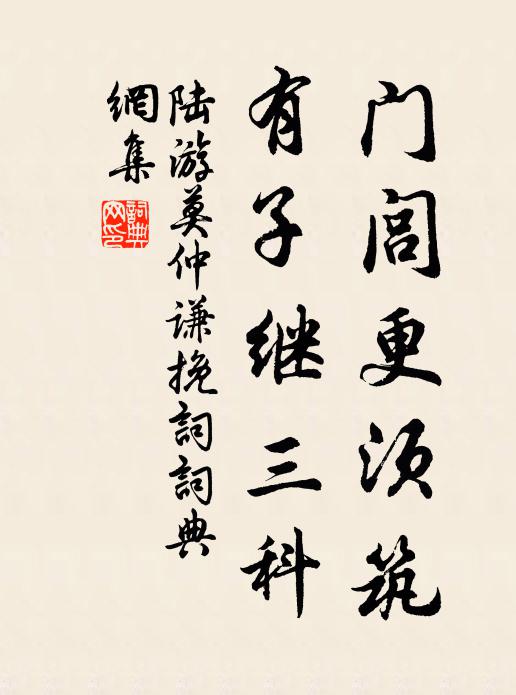 门闾更须筑
有子继三科
陆游莫仲谦挽詞詞典
網集
詞典
网印